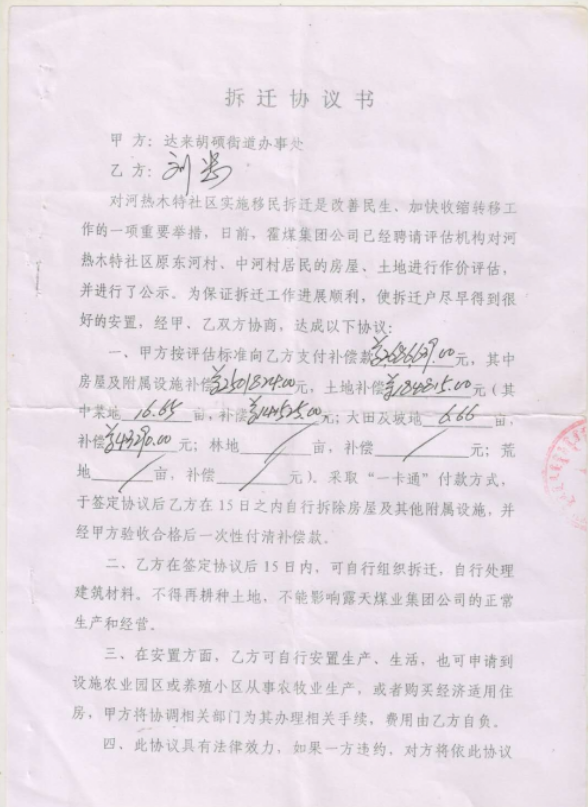 拆迁协议书
甲方：达来胡硕街道办事处
乙方：刘
对河热木特社区实施移民拆迁是改善民生、加快收缩转移工
作的一项重要举措，日前，霍煤集团公司已经聘请评估机构对河
热木特社区原东河村、中河村居民的房屋、土地进行作价评估，
并进行了公示。为保证拆迁工作进展顺利，使拆迁户尽早得到很
好的安置，经甲、乙双方协商，达成以下协议：
一、甲方按评估标准向乙方支付补偿款¥2686639.00元，其中
房屋及附属设施补偿¥2501824.00元，土地补偿¥184815.00元（其
中菜地 16.65 亩，补偿¥141525.00元；大田及坡地 6.66 亩，
补偿¥43290.00元；林地 / 亩，补偿 / 元；荒
地 / 亩，补偿 / 元）。采取“一卡通”付款方式，
于签定协议后乙方在15日之内自行拆除房屋及其他附属设施，并
经甲方验收合格后一次性付清补偿款。
二、乙方在签定协议后15日内，可自行组织拆迁，自行处理
建筑材料。不得再耕种土地，不能影响露天煤业集团公司的正常
生产和经营。
三、在安置方面，乙方可自行安置生产、生活，也可申请到
设施农业园区或养殖小区从事农牧业生产，或者购买经济适用住
房，甲方将协调相关部门为其办理相关手续，费用由乙方自负。
四、此协议具有法律效力，如果一方违约，对方将依此协议